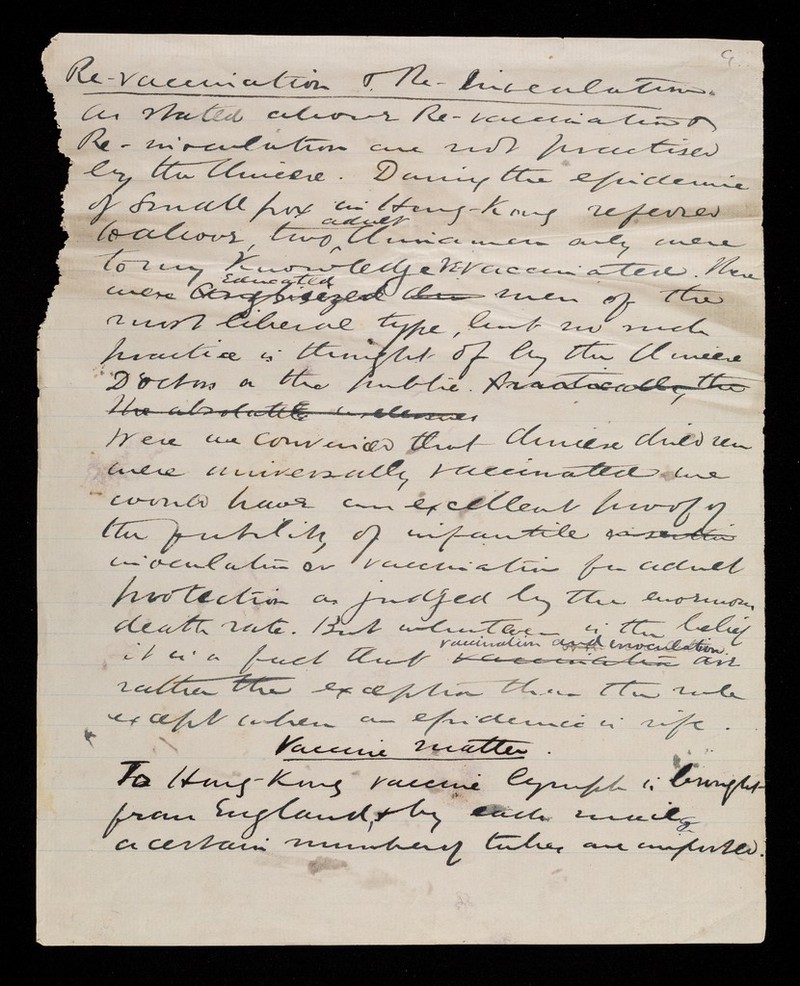 9.
Re-vaccination & Re-inoculation.
As stated above Re-vaccination &
Re-inoculation are not practised
by the Chinese. During the epidemic
of Small pox in Hong-Kong referred
to above, two adult Chinamen only were
to my knowledge revaccinated. These
were Educated Anglicized men of the
most liberal type, but no such
practice is thought of by the Chinese
Doctors or the public. Practically, the
the absolute uselessness
Were we convinced that Chinese children
were universally vaccinated we
would have an excellent proof of
the futility of infantile
inoculation or vaccination for adult
protection as judged by the enormous
death rate. But whatever is the belief
it is a fact that vaccination and inoculation vaccination are
rather the exception than the rule
except when an epidemic is rife.
Vaccine matter.
To Hong-Kong vaccine lymph is brought
from England, & by each mail
a certain number of tubes are imported.